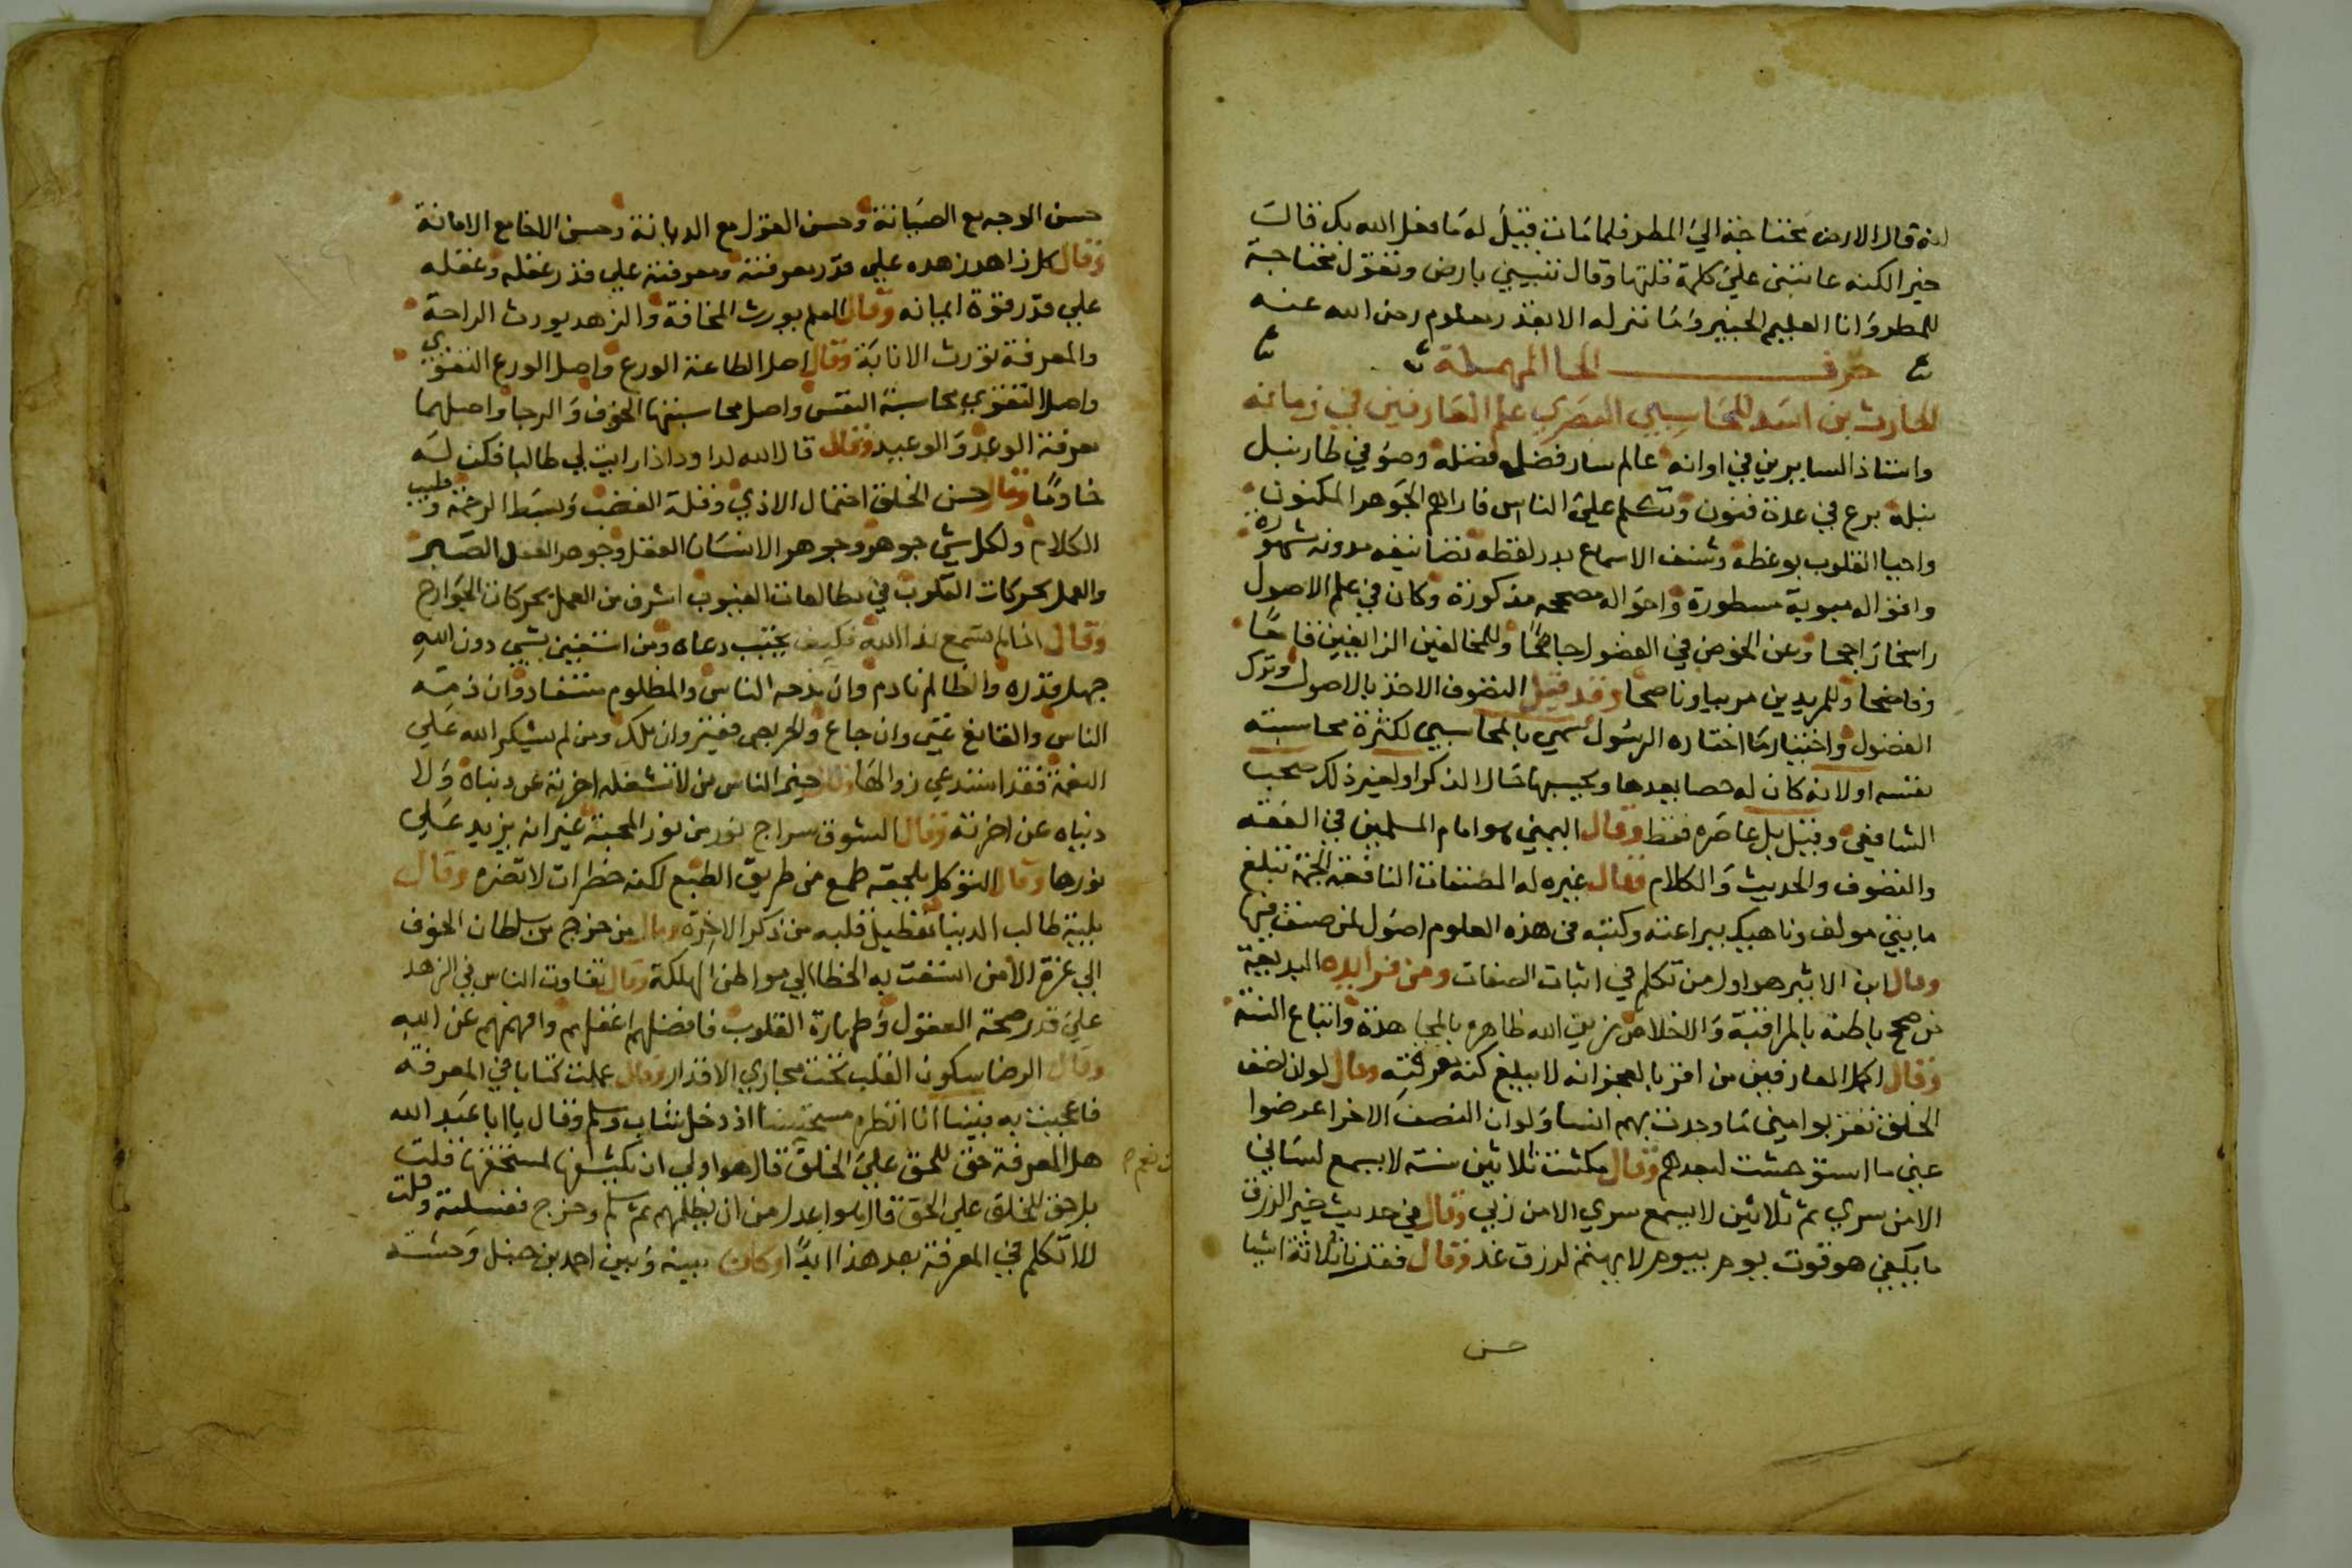 لانه قال الارض محتاجة الي المطر فلما مات قيل له ما فعل الله بك قال
خيرا لكنه عاتبني علي كلمة قلتها وقال تنبيني بارض وتقول محتاجة
للمطر وانا العليم الخبير وما ننزله الا بقدر معلوم رضي الله عنه
حرف الحا المهملة
الحارث بن اسد المحاسبي البصري علم العارفين في زمانه
واستاذ السايرين في اوانه عالم سار فضله وضو في طار نبل
نبله برع في عدة فنون وتكلم علي الناس فاراهم الجوهر المكنون
واحيا القلوب بوعظه وشنف الاسماع بدر لفظه تصانيفه مدونه مشهورة
واقواله مبوبة مسطورة واحواله مصححه مذكورة وكان في علم الاصول
راسخا راجحا وعن الخوض في الفضول جامحا وللمخالفين الزايغين قامحا
وفاضحا وللمريدين مربيا وناصحا وقد قيل التصوف الاخذ بالاصول وترك
الفضول واختيار ما اختاره الرسول سمي بالمحاسبي لكثرة محاسبته
نفسه او لانه كان له حصا يعدها ويحسبها حال الذكر او لغير ذلك صحب
الشافعي وقيل بل عاصره فقط وقال التميمي هو امام المسلمين في الفقه
والتصوف والحديث والكلام وقال غيره له المصنفات النافعة الجمة تبلغ
مايتي مولف وناهيك ببراعته وكتبه في هذه العلوم اصول لمن صنف فيها
وقال ابن الاثير هو اول من تكلم في اثبات الصفات ومن فوايده البديعة
من صحح باطنه بالمراقبة والاخلاص زين الله ظاهره بالمجاهدة واتباع السنة
وقال اكمل العارفين من اقر بالعجز انه لا يبلغ كنه معرفته وقال لو ان نصف
الخلق تقربوا مني ما وجدت بهم انسا ولو ان النصف الاخر اعرضوا
عني ما استوحشت لبعدهم وقال مكثت ثلاثين سنة لا يسمع لساني
الا من سري ثم ثلاثين لا يسمع سري الا من ربي وقال في حديث خير الرزق
ما يكفي هو قوت يوم بيوم لا يهتم لرزق غد وقال فقدنا ثلاثة اشيا
حسن
حسن الوجه مع الصيانة وحسن القول مع الديانة وحسن الاخا مع الامانة
وقال كل زاهد زهده علي قدر معرفته ومعرفته علي قدر عقله وعقله
علي قدر قوة ايمانه وقال العلم يورث المخافة والزهد يورث الراحة
والمعرفة تورث الانابة وقال اصل الطاعة الورع واصل الورع التقوي
واصل التقوي محاسبة النفس واصل محاسبتها الخوف والرجا واصلهما
معرفة الوعد والوعيد وقال قال الله لداود اذا رايت لي طالبا فكن له
خادما وقال حسن الخلق احتمال الاذي وقلة الغضب وبسط الرحمة وطيب
الكلام ولكل شي جوهر وجوهر الانسان العقل وجوهر العقل الصبر
والعمل بحركات القلوب في مطالعات الغيوب اشرف من العمل بحركات الجوارح
وقال اذا لم تسمع ندا الله فكيف يجيب دعاه ومن استغني بشي دون الله
جهل قدره والظالم نادم وان مدحه الناس والمظلوم مستفاد وان ذمه
الناس والقانع غني وان جاع والحريص فقير وان ملك ومن لم يشكر الله علي
النعمة فقد استدعي زوالها وقال خير الناس من لا تشغله اخرته عن دنياه ولا
دنياه عن اخرته وقال الشوق سراج نور من نور المحبة غير انه يزيد علي
نورها وقال المتوكل يلحقه طمع من طريق الطبع لكنه خطرات لا تضره وقال
بلية طالب الدنيا تعطيل قلبه من ذكر الاخرة وقال من خرج من سلطان الخوف
الي عزة الامن اتسعت به الخطا الي مواطن الهلكة وقال تفاوت الناس في الزهد
علي قدر صحة العقول وطهارة القلوب فافضلهم اعقلهم وافهمهم عن الله
وقال الرضا سكون القلب تحت مجاري الاقدار وقال عملت كتابا في المعرفة
فاعجبت به فبينا انا انظره مستحسنا اذ دخل شاب وسلم وقال يا ابا عبد الله
هل المعرفة حق للحق علي الخلق قال هو اولي ان يكشفها لمستحقها قلت
بل حق للخلق علي الحق قال هو اعدل من ان يظلمهم ثم سلم وخرج فغسلته وقلت
لا اتكلم في المعرفة بعد هذا ابدا وكان بينه وبين احمد بن حنبل وحشة